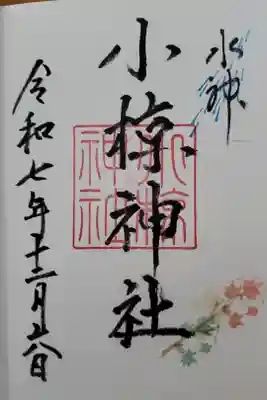 水神
小椋神社
小椋
神社
令和七年十二月日